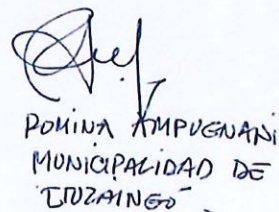 ROMINA AMPUGNANI
MUNICIPALIDAD DE
ITUZAINGÓ